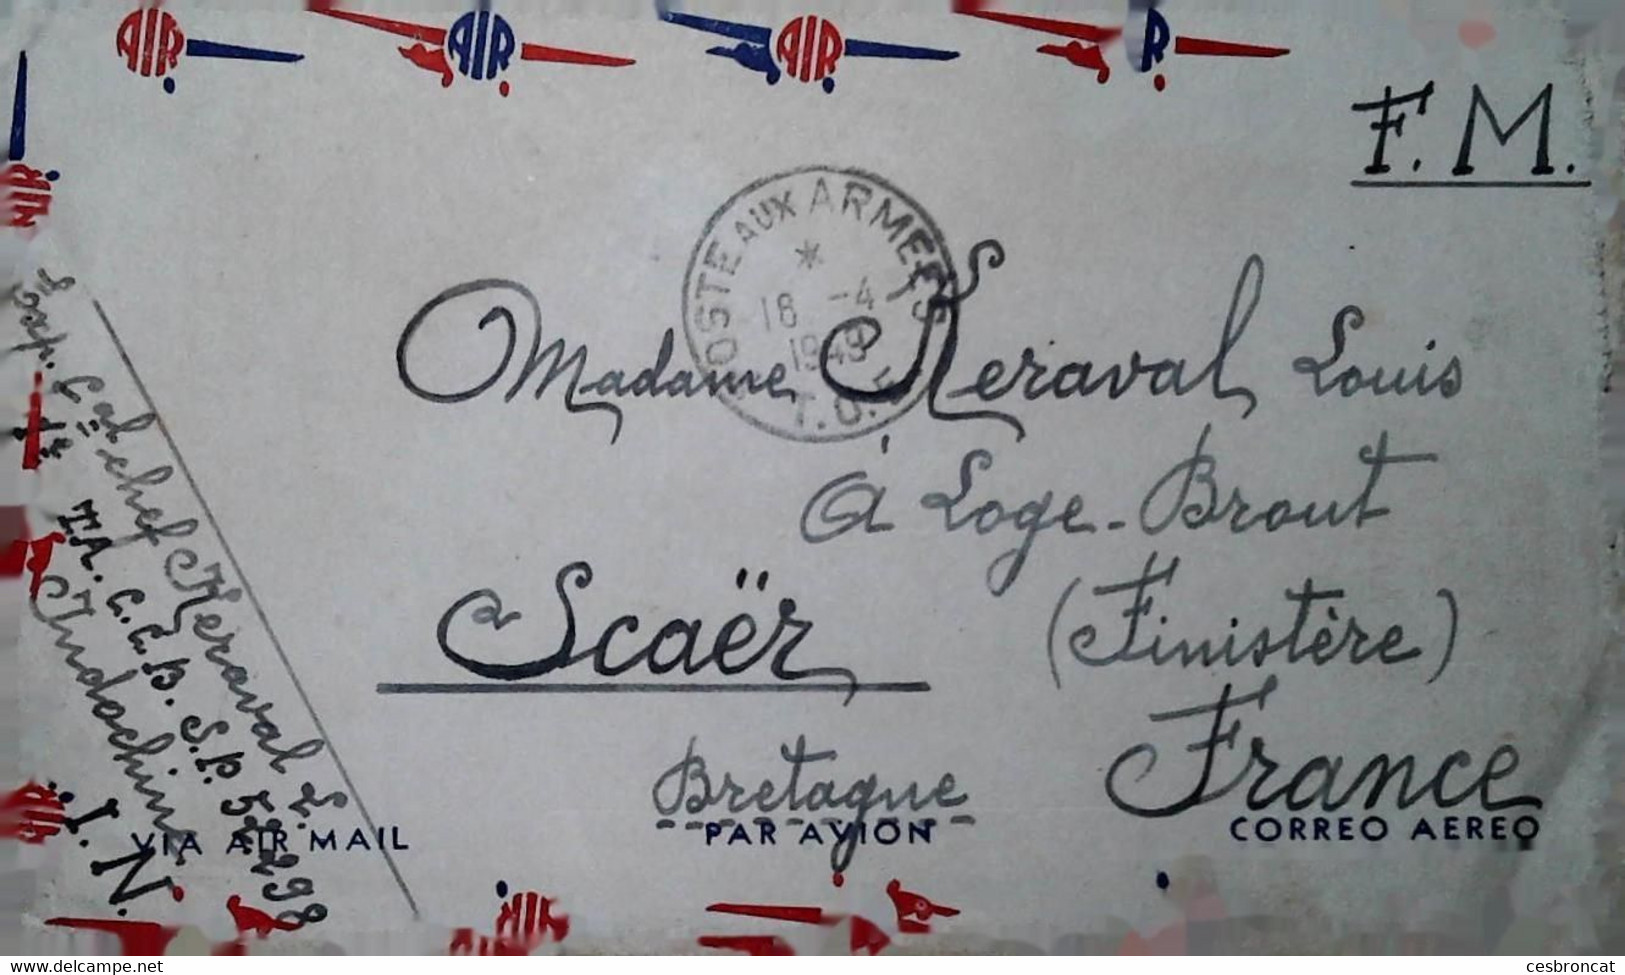 AIR AIR AIR R
F. M.
POSTE AUX ARMEES
*
18 -4
1949
T.O.E
Madame Keraval Louis
à Loge-Brout
Scaër (Finistère)
Bretagne France
VIA AIR MAIL PAR AVION CORREO AEREO
Exp. Cal chef Keraval L.
T.A. C.C.B. S.P. 52.298
Indochine
I.N.
AIR
AIR
AIR
cesbroncat